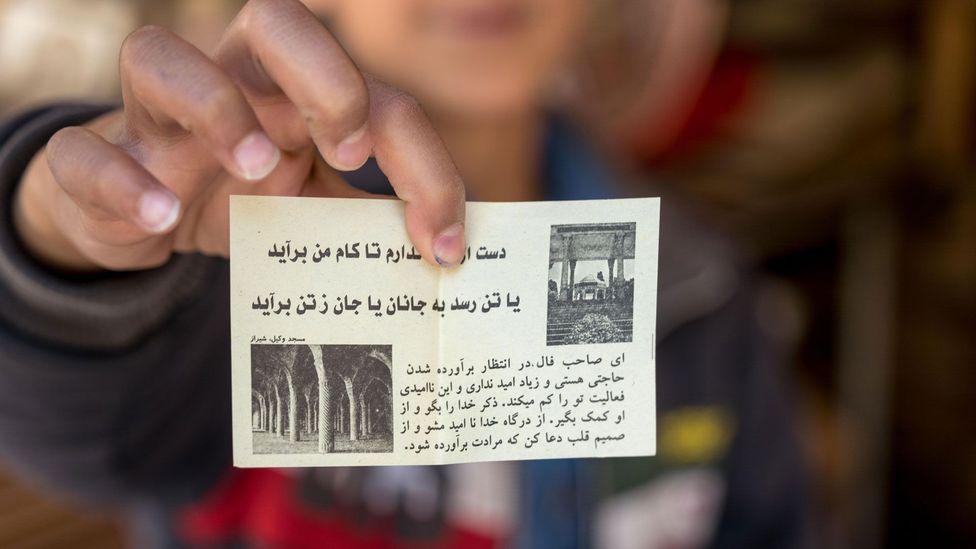 دست ا دارم تا کام من برآید
یا تن رسد به جانان یا جان ز تن برآید
مسجد وکیل، شیراز
ای صاحب فال،در انتظار برآورده شدن
حاجتی هستی و زیاد امید نداری و این ناامیدی
فعالیت تو را کم میکند. ذکر خدا را بگو و از
او کمک بگیر. از درگاه خدا نا امید مشو و از
صمیم قلب دعا کن که مرادت برآورده شود.